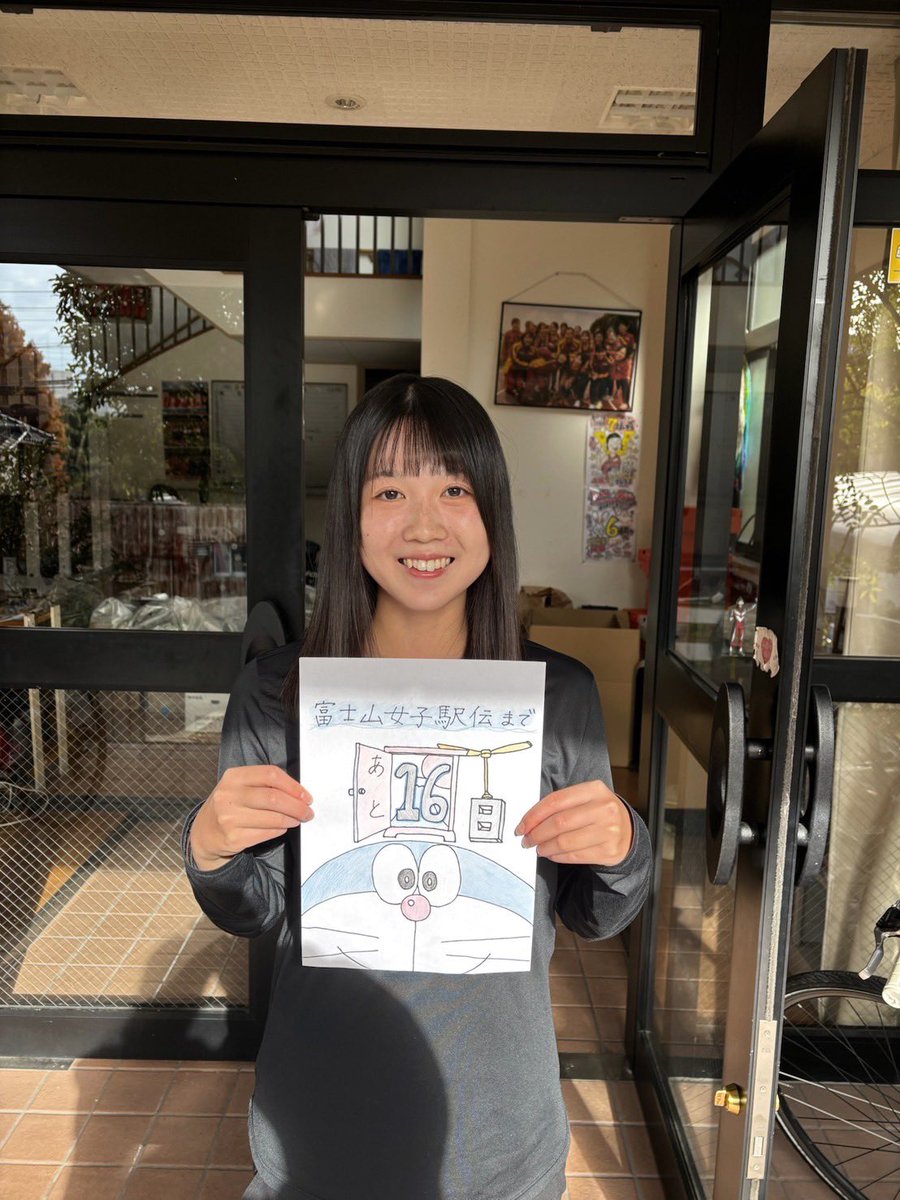 富士山女子駅伝まで
あと
16
日
6